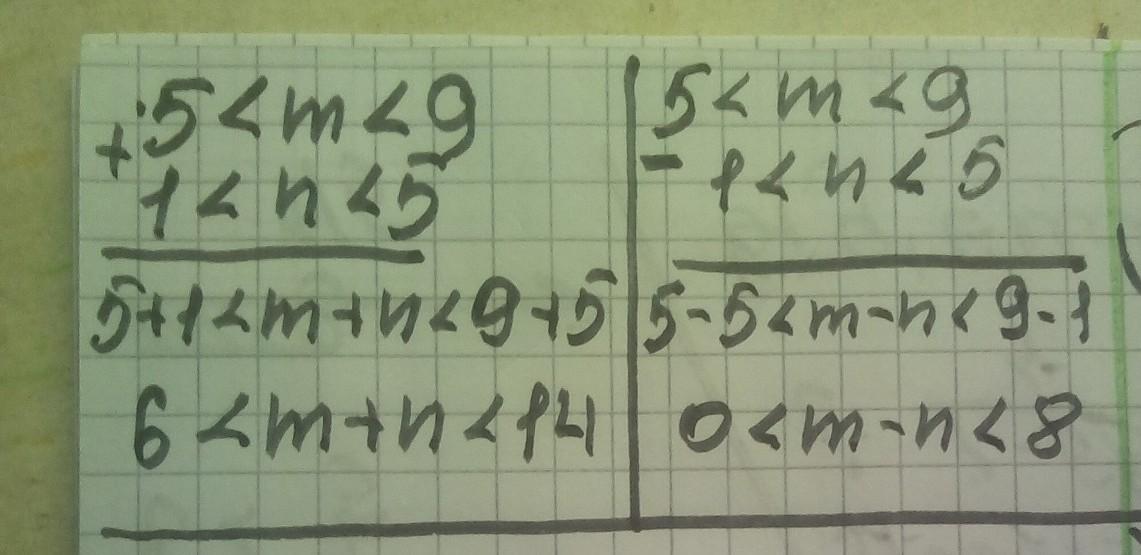 5 < m < 9
+
1 < n < 5
5+1 < m+n < 9+5
6 < m+n < 14
5 < m < 9
-
1 < n < 5
5-5 < m-n < 9-1
0 < m-n < 8